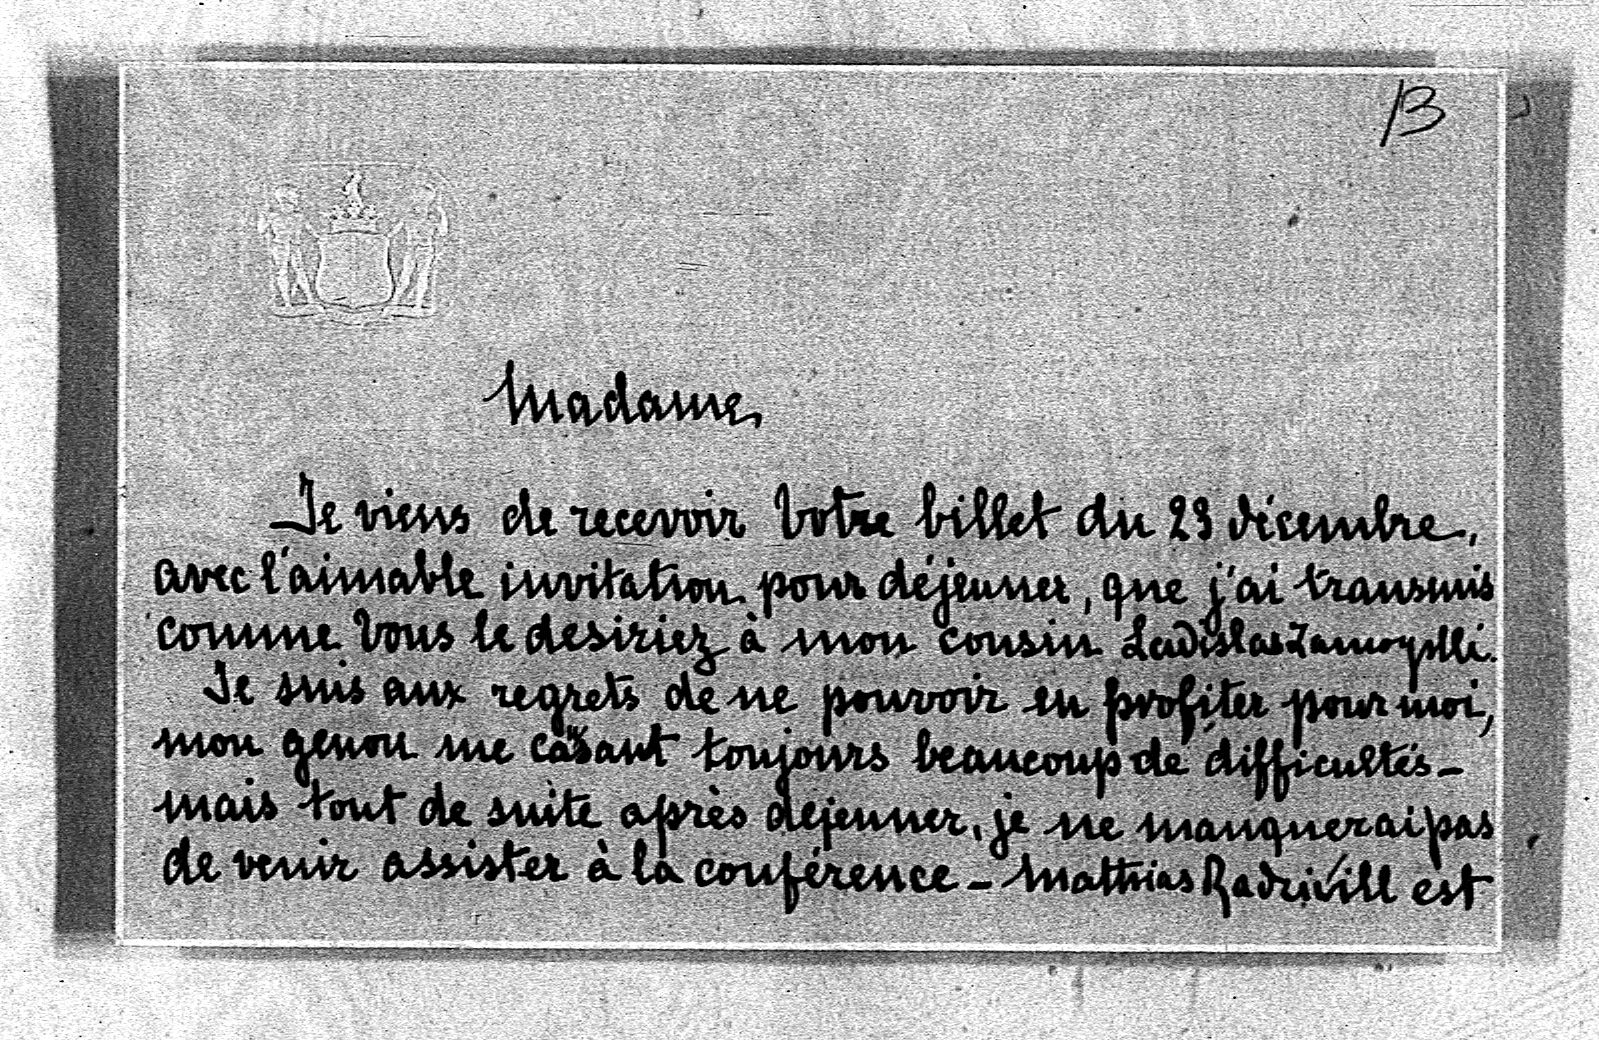 13
Madame,
Je viens de recevoir Votre billet du 23 décembre,
avec l'aimable invitation pour déjeuner, que j'ai transmis
comme Vous le desiriez à mon cousin Ladislas Zamoyski.
Je suis aux regrets de ne pouvoir en profiter pour moi,
mon genou me causant toujours beaucoup de difficultés –
mais tout de suite après dejeuner, je ne manquerai pas
de venir assister à la conférence – Matthias Radziwill est